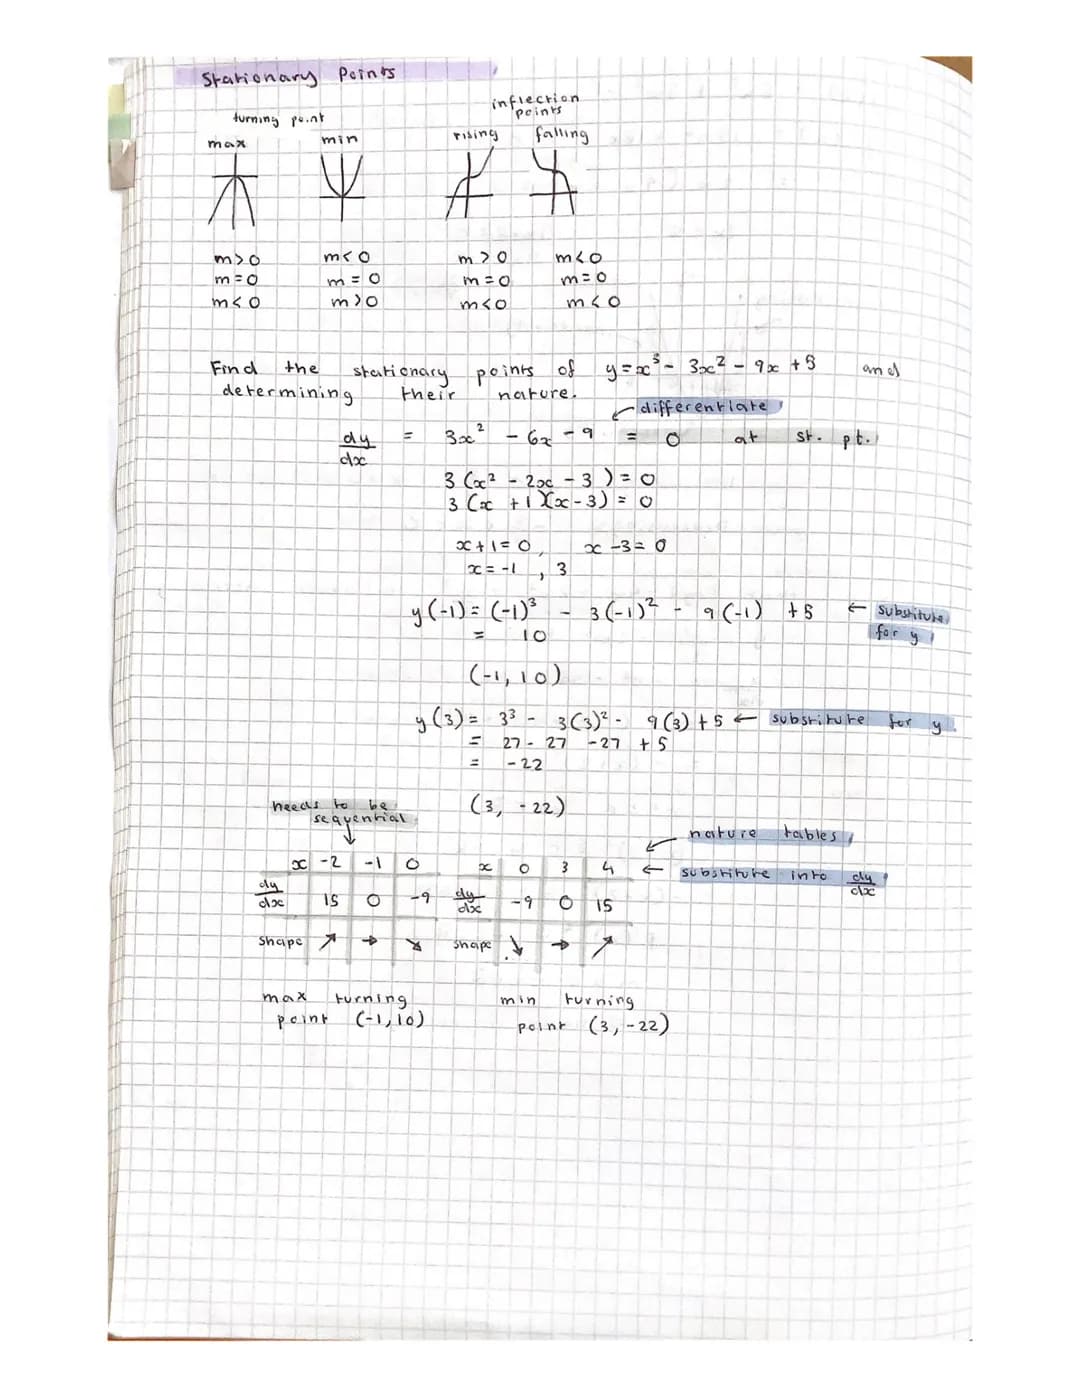 Stationary Points
inflection
points
turning point
max min rising falling
m>0 m<0 m>0 m<0
m=0 m=0 m=0 m=0
m<0 m>0 m<0 m<0
Find the stationary points of y=x³ - 3x² - 9x +5 and
determining their nature.
differentiate
dy/dx = 3x² - 6x - 9 = 0 at st. pt.
3(x² - 2x - 3) = 0
3(x +1)(x-3) = 0
x+1=0, x-3=0
x=-1, 3
y(-1)= (-1)³ - 3(-1)² - 9(-1) +5 ← substitute
for y
= 10
(-1, 10)
y(3)= 3³ - 3(3)² - 9(3)+5 ← substitute for y
= 27 - 27 -27 +5
= -22
(3, -22)
needs to be
sequential
nature tables
x -2 -1 0 x 0 3 4 ← substitute into dy/dx
dy/dx 15 0 -9 dy/dx -9 0 15
shape ↗ → ↘ shape ↘ → ↗
max turning min turning
point (-1,10) point (3,-22)